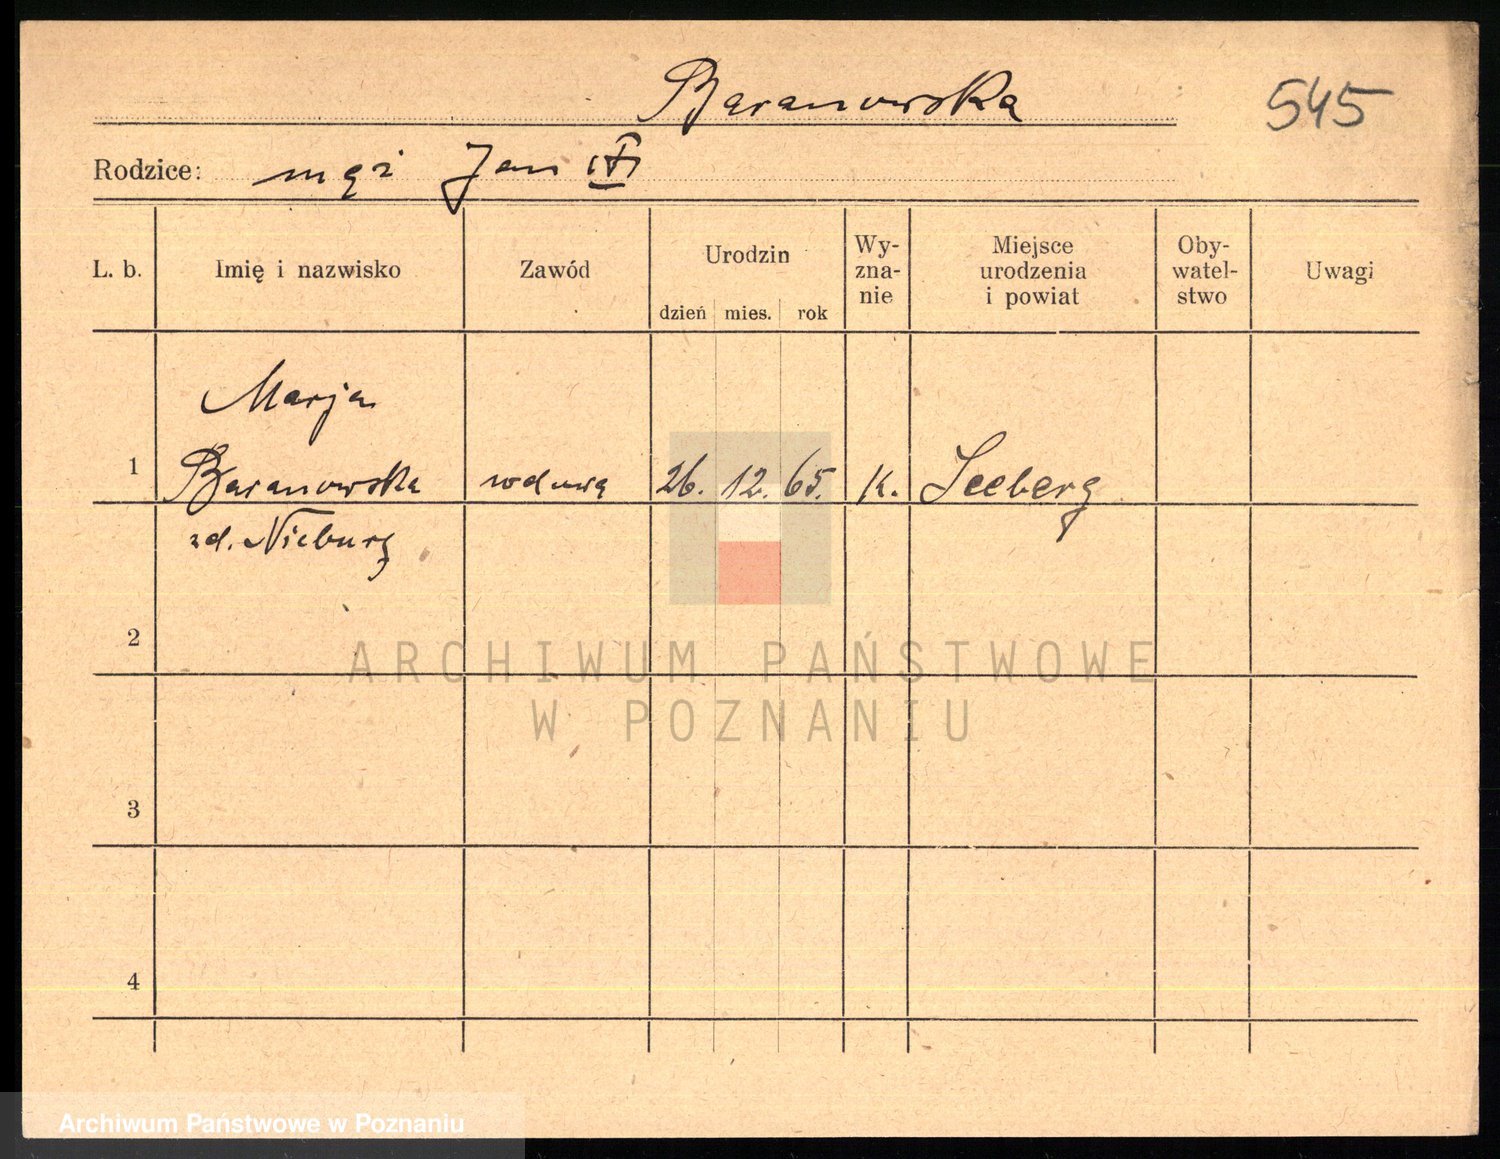 Baranowska
545
Rodzice: mąż Jan (†)
L. b. Imię i nazwisko Zawód Urodzin Wy-zna-nie Miejsce urodzenia i powiat Oby-watel-stwo Uwagi
dzień mies. rok
Marja
1 Baranowska wdowa 26. 12. 65. K. Seeberg
zd. Nieburg
2
ARCHIWUM PAŃSTWOWE
W POZNANIU
3
4
Archiwum Państwowe w Poznaniu